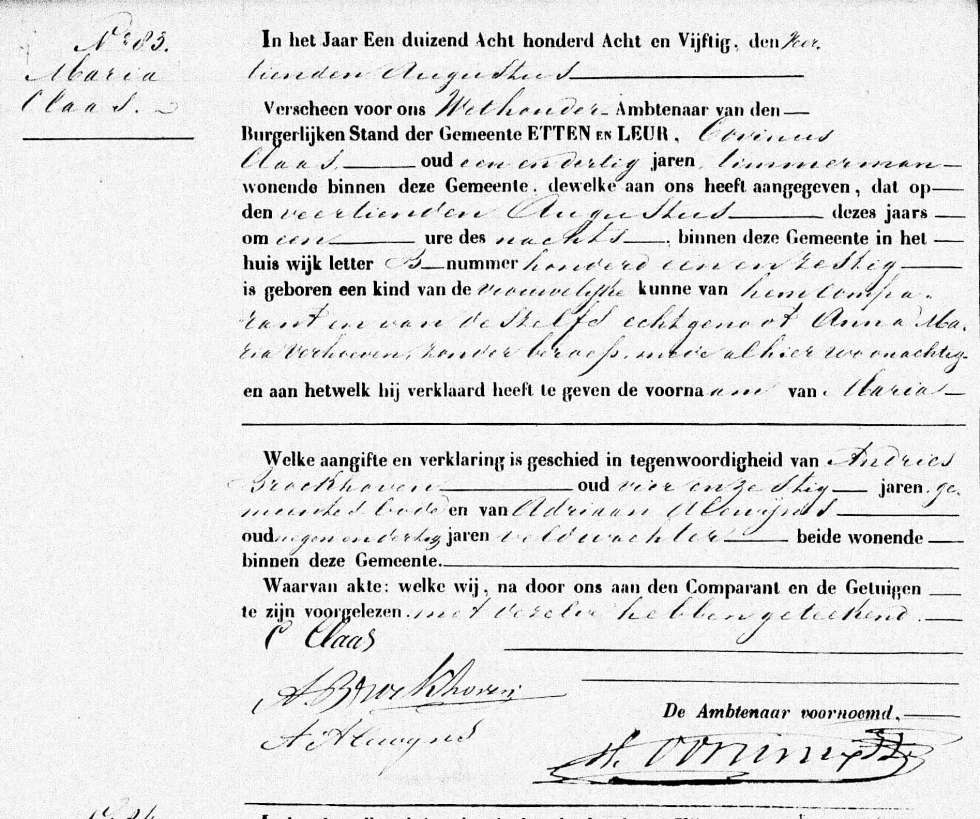 No 83.
Maria
Claas.
In het Jaar Een duizend Acht honderd Acht en Vijftig, den veer
tienden Augustus
Verscheen voor ons Wethouder Ambtenaar van den
Burgerlijken Stand der Gemeente ETTEN EN LEUR, Covinus
Claas oud een en dertig jaren, timmerman
wonende binnen deze Gemeente, dewelke aan ons heeft aangegeven, dat op
den veertienden Augustus dezes jaars
om een ure des nachts, binnen deze Gemeente in het
huis wijk letter B nummer honderd een en zestig
is geboren een kind van de vrouwelijke kunne van hem compa-
rant en van deszelfs echtgenoot Anna Ma-
ria Verhoeven, zonder beroep, mede alhier woonachtig
en aan hetwelk hij verklaard heeft te geven de voornaam van Maria
Welke aangifte en verklaring is geschied in tegenwoordigheid van Andries
Broekhoven oud vier en zestig jaren, ge-
meentebode en van Adriaan Alewijns
oud negen en dertig jaren veldwachter beide wonende
binnen deze Gemeente.
Waarvan akte: welke wij, na door ons aan den Comparant en de Getuigen
te zijn voorgelezen met dezelve hebben geteekend.
C Claas
A. Broekhoven
A Alewyns
De Ambtenaar voornoemd,